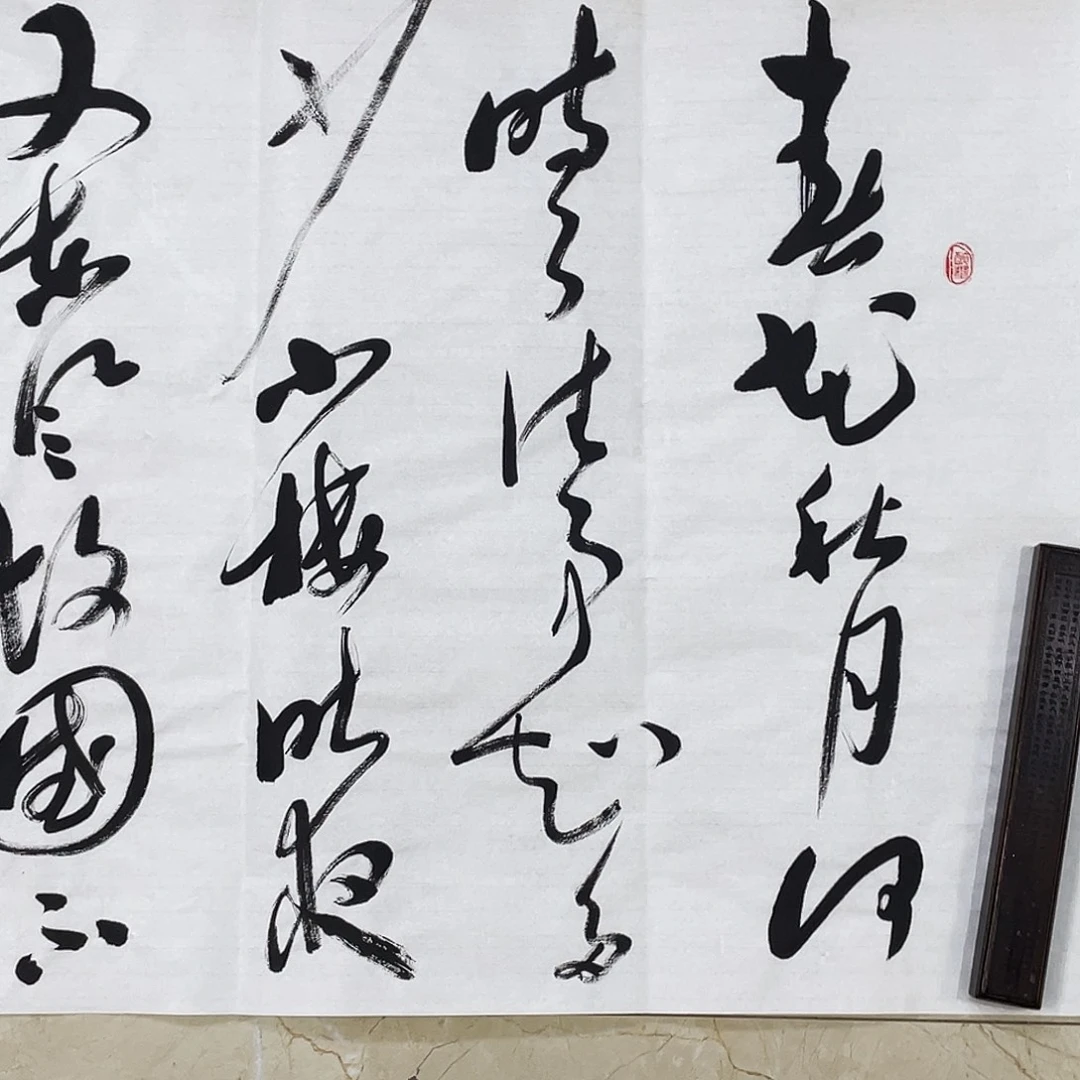 春花秋月何
時了往事知多
少小樓昨夜
又東風故國不